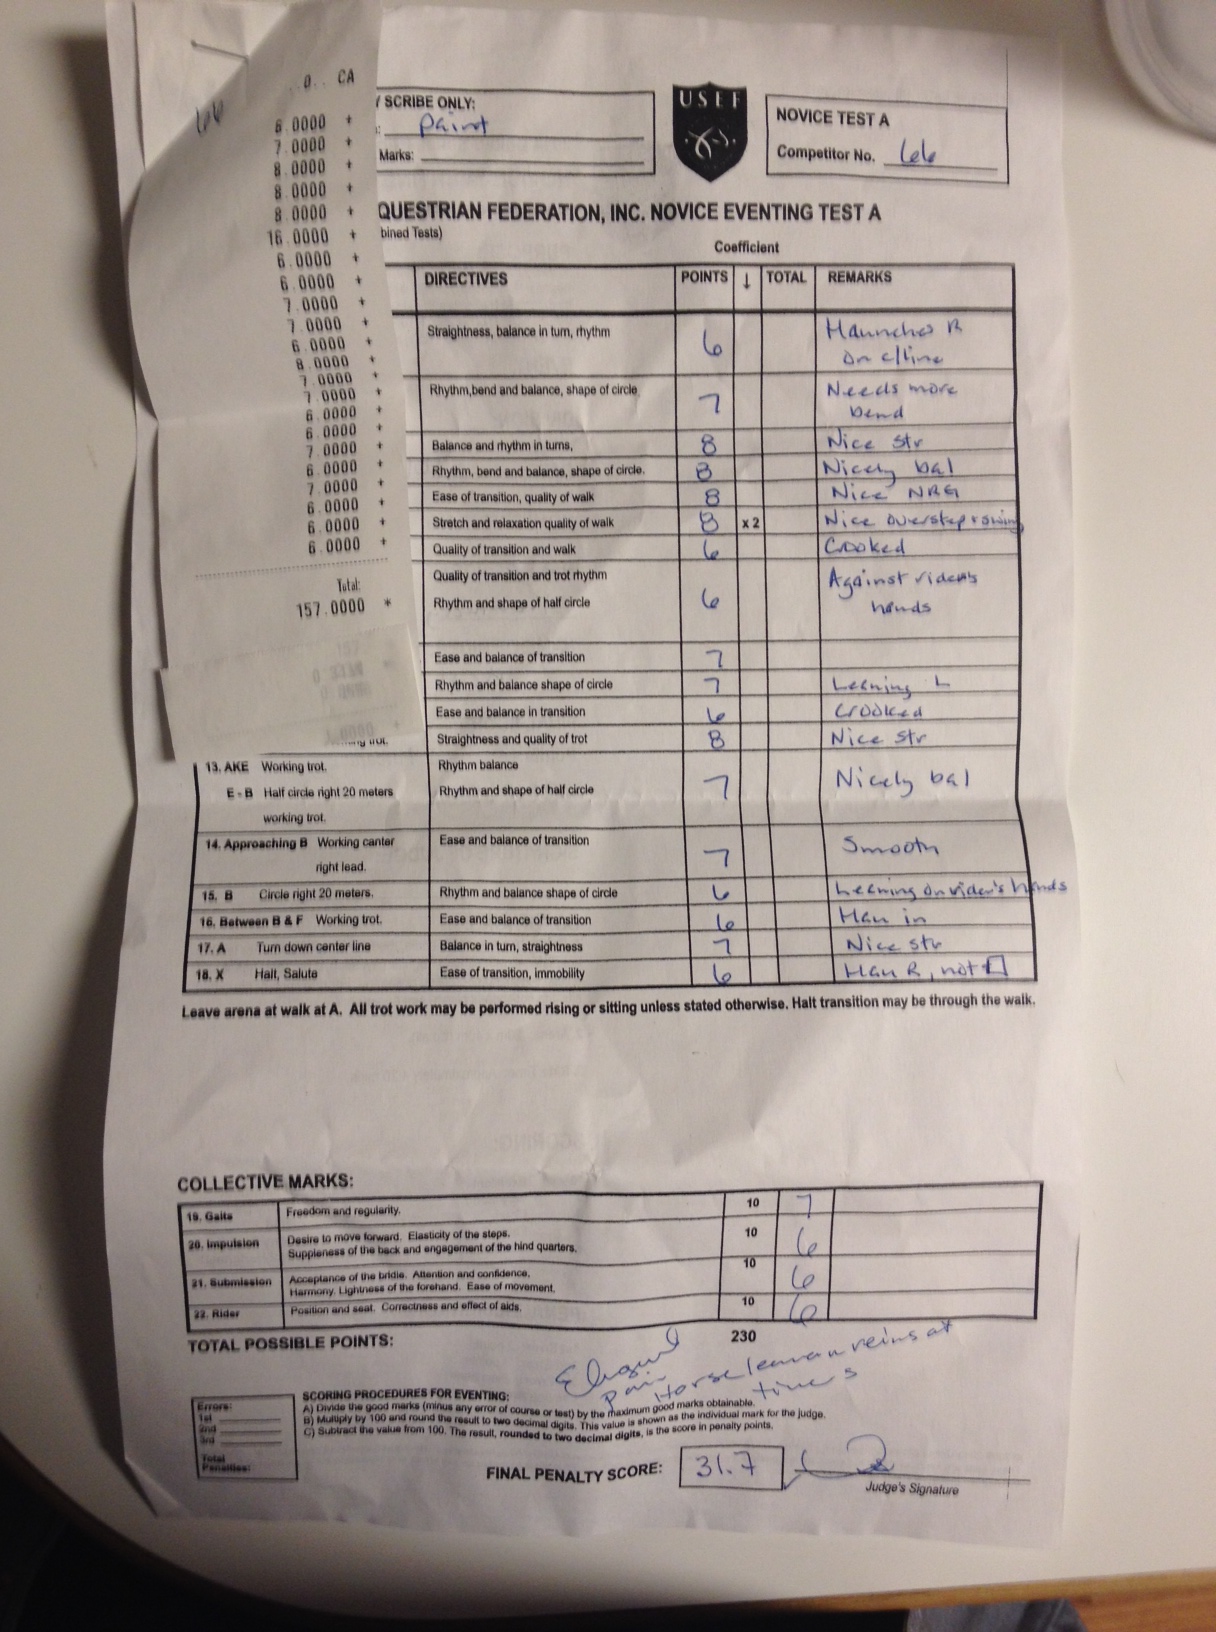 0.. CA
66
6.0000 +
7.0000 +
8.0000 +
8.0000 +
8.0000 +
16.0000 +
6.0000 +
6.0000 +
7.0000 +
7.0000 +
6.0000 +
8.0000 +
7.0000 +
7.0000 +
6.0000 +
6.0000 +
7.0000 +
6.0000 +
7.0000 +
6.0000 +
6.0000 +
6.0000 +
Total:
157.0000 *
SCRIBE ONLY:
paint
Marks:
USEF
NOVICE TEST A
Competitor No. 66
QUESTRIAN FEDERATION, INC. NOVICE EVENTING TEST A
bined Tests)
Coefficient
DIRECTIVES POINTS ↓ TOTAL REMARKS
Straightness, balance in turn, rhythm 6 Haunches R
on c/line
Rhythm,bend and balance, shape of circle 7 Needs more
bend
Balance and rhythm in turns, 8 Nice str
Rhythm, bend and balance, shape of circle. 8 Nicely bal
Ease of transition, quality of walk 8 Nice NRG
Stretch and relaxation quality of walk 8 x 2 Nice overstep + swing
Quality of transition and walk 6 Crooked
Quality of transition and trot rhythm Against rider's
Rhythm and shape of half circle 6 hands
Ease and balance of transition 7
Rhythm and balance shape of circle 7 Leaning L
Ease and balance in transition 6 Crooked
trot. Straightness and quality of trot 8 Nice str
13. AKE Working trot. Rhythm balance
E - B Half circle right 20 meters Rhythm and shape of half circle 7 Nicely bal
working trot.
14. Approaching B Working canter Ease and balance of transition 7 Smooth
right lead.
15. B Circle right 20 meters. Rhythm and balance shape of circle 6 Leaning on rider's hands
16. Between B & F Working trot. Ease and balance of transition 6 Haun in
17. A Turn down center line Balance in turn, straightness 7 Nice str
18. X Halt, Salute Ease of transition, immobility 6 Haun R, not □
Leave arena at walk at A. All trot work may be performed rising or sitting unless stated otherwise. Halt transition may be through the walk.
COLLECTIVE MARKS:
19. Gaits Freedom and regularity. 10 7
20. Impulsion Desire to move forward. Elasticity of the steps. 10 6
Suppleness of the back and engagement of the hind quarters.
21. Submission Acceptance of the bridle. Attention and confidence. 10 6
Harmony. Lightness of the forehand. Ease of movement.
22. Rider Position and seat. Correctness and effect of aids. 10 6
TOTAL POSSIBLE POINTS: 230
Elegant
pair
Horse lean on reins at
times
Errors:
1st
2nd
3rd
Total
Penalties:
SCORING PROCEDURES FOR EVENTING:
A) Divide the good marks (minus any error of course or test) by the maximum good marks obtainable.
B) Multiply by 100 and round the result to two decimal digits. This value is shown as the individual mark for the judge.
C) Subtract the value from 100. The result, rounded to two decimal digits, is the score in penalty points.
FINAL PENALTY SCORE: 31.7
Judge's Signature